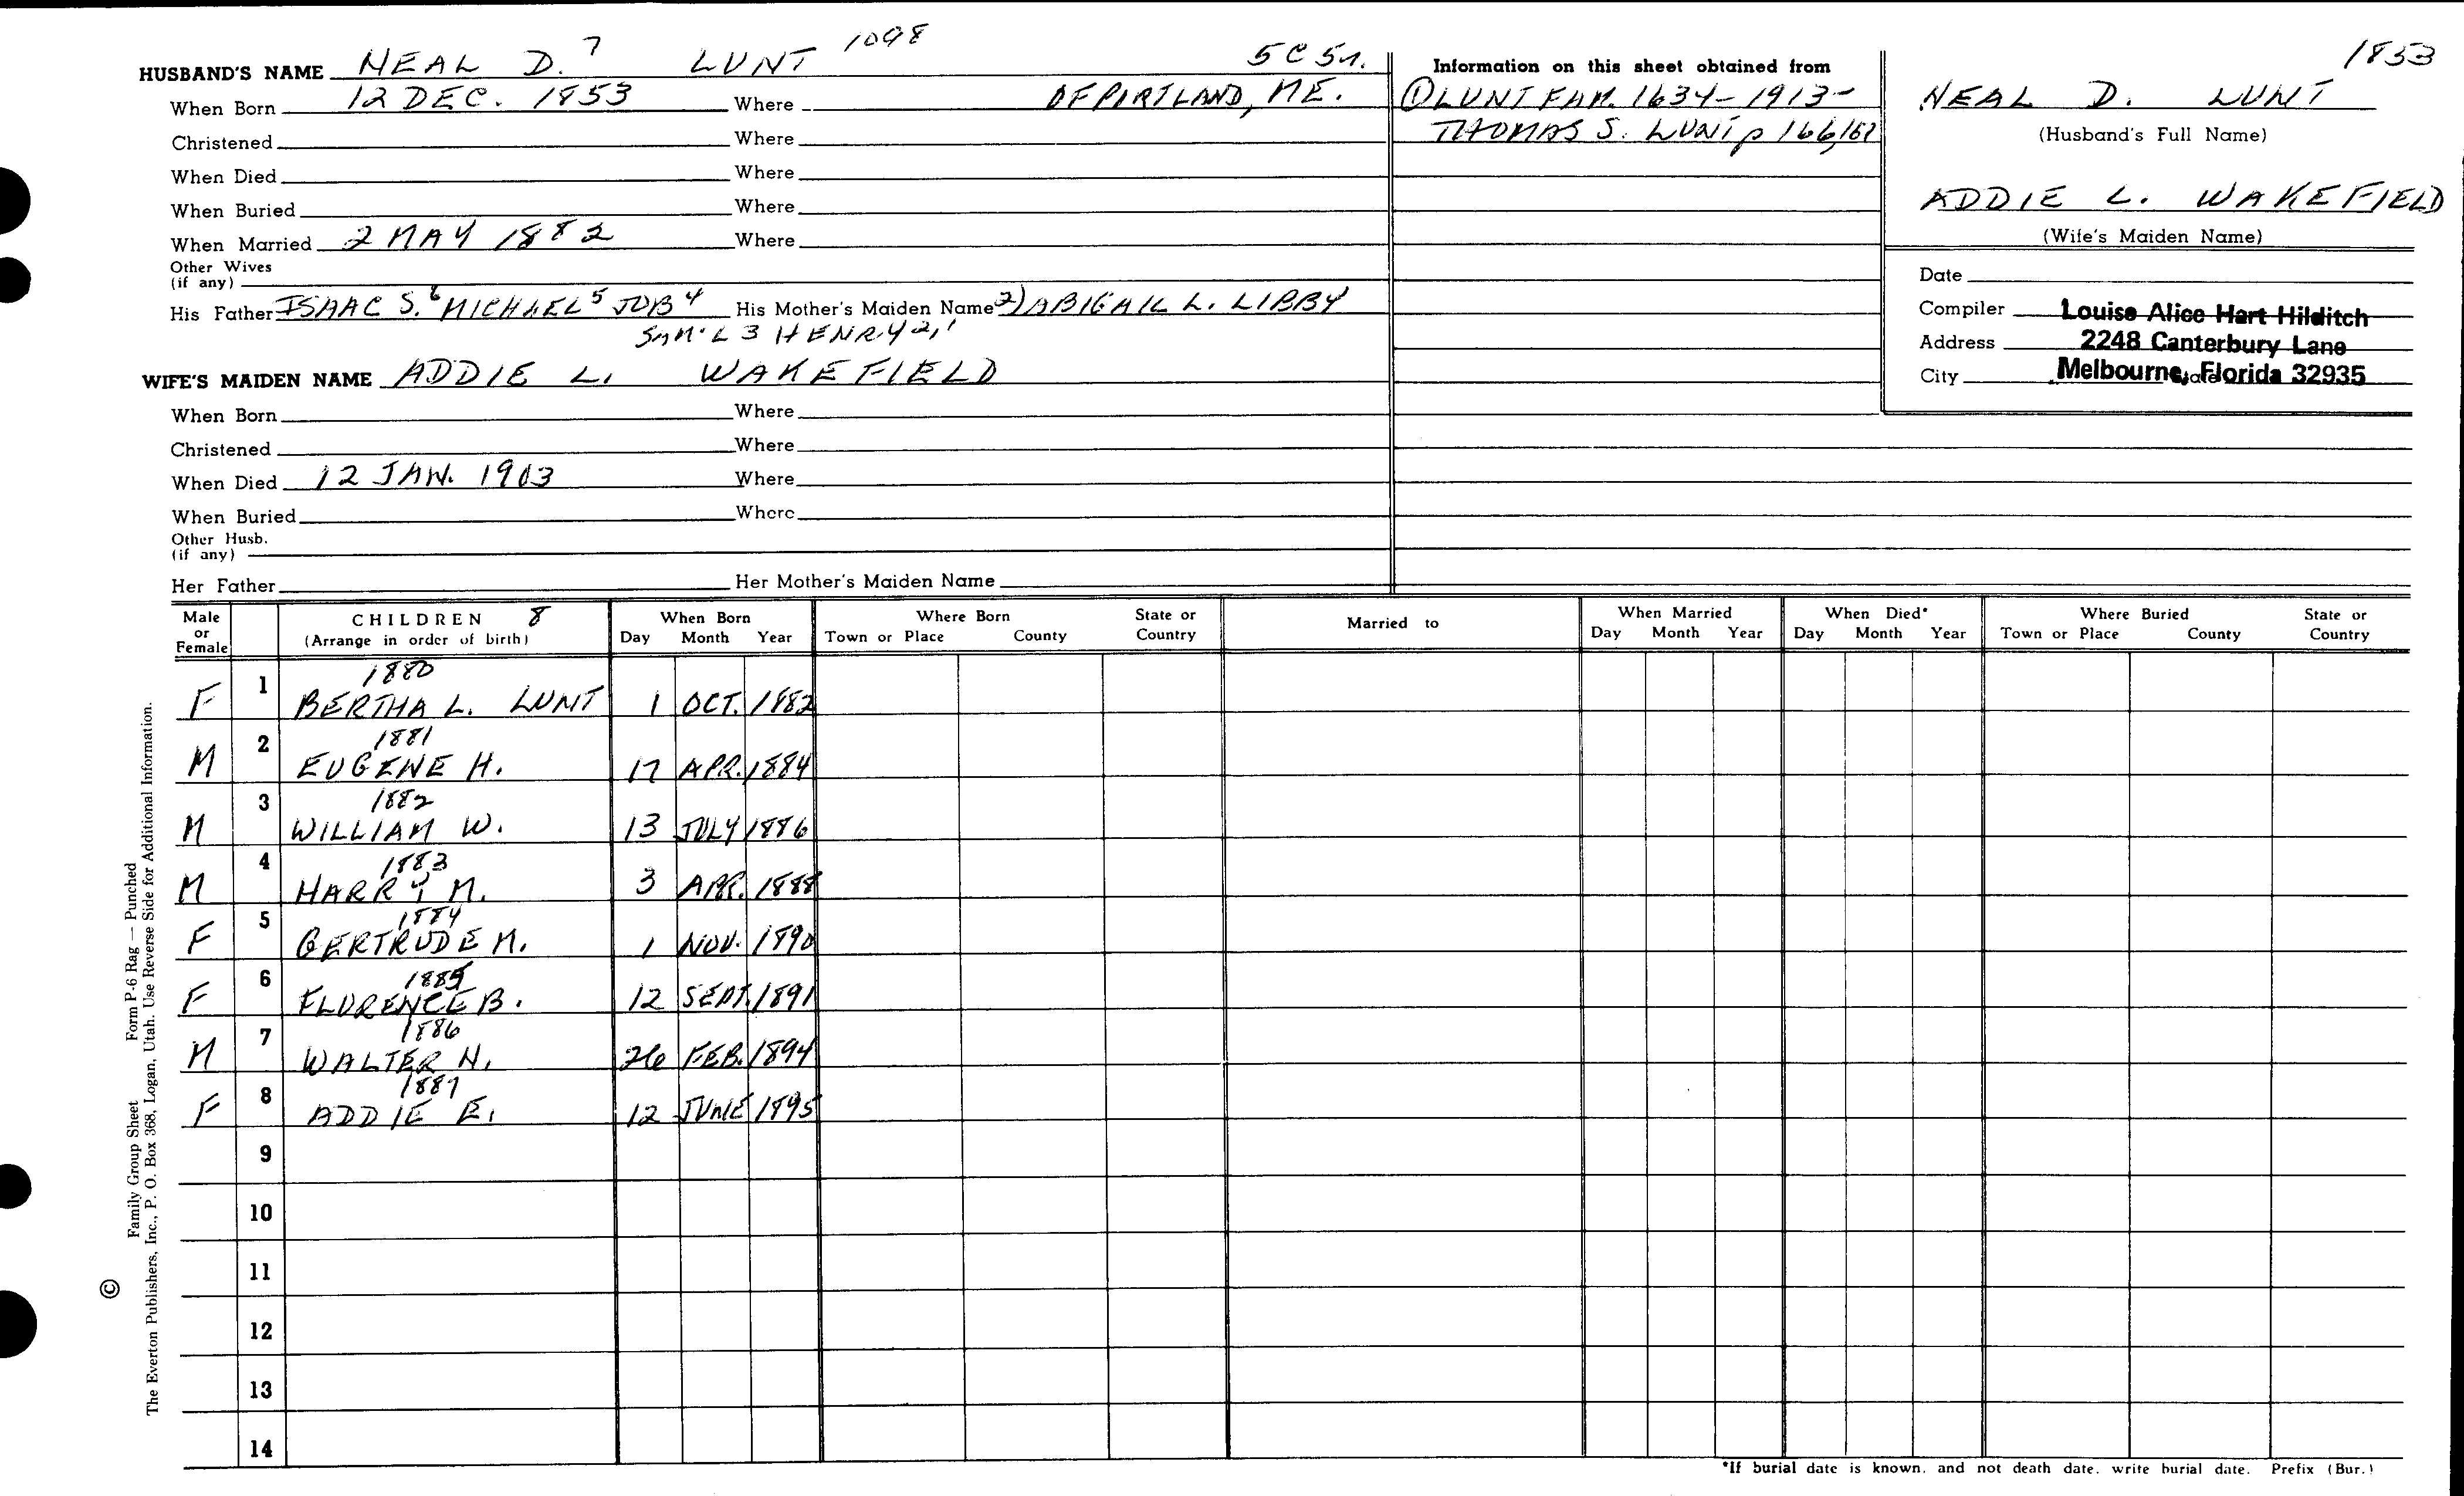 1098 5C5n. 1853
HUSBAND'S NAME NEAL D.7 LUNT
When Born 12 DEC. 1853 Where OF PORTLAND, ME.
Christened Where
When Died Where
When Buried Where
When Married 2 MAY 1882 Where
Other Wives
(if any)
His Father ISAAC S.6 MICHAEL5 JOB4 His Mother's Maiden Name 2) ABIGAIL L. LIBBY
SAM'L 3 HENRY 2,1
WIFE'S MAIDEN NAME ADDIE L. WAKEFIELD
When Born Where
Christened Where
When Died 12 JAN. 1903 Where
When Buried Where
Other Husb.
(if any)
Her Father Her Mother's Maiden Name
Information on this sheet obtained from
① LUNT FAM. 1634-1913-
THOMAS S. LUNT p 166,167
NEAL D. LUNT
(Husband's Full Name)
ADDIE L. WAKEFIELD
(Wife's Maiden Name)
Date
Compiler Louise Alice Hart Hilditch
Address 2248 Canterbury Lane
City Melbourne, Florida 32935
Male or Female CHILDREN 8 (Arrange in order of birth) When Born Day Month Year Where Born Town or Place County State or Country Married to When Married Day Month Year When Died* Day Month Year Where Buried Town or Place County State or Country
1880
F 1 BERTHA L. LUNT 1 OCT. 1882
1881
M 2 EUGENE H. 17 APR. 1884
1882
M 3 WILLIAM W. 13 JULY 1886
1883
M 4 HARRY M. 3 APR. 1888
1884
F 5 GERTRUDE M. 1 NOV. 1890
1885
F 6 FLORENCE B. 12 SEPT. 1891
1886
M 7 WALTER N. 26 FEB. 1894
1887
F 8 ADDIE E. 12 JUNE 1895
9
10
11
12
13
14
*If burial date is known, and not death date, write burial date. Prefix (Bur.)
Family Group Sheet Form P-6 Rag — Punched
© The Everton Publishers, Inc., P. O. Box 368, Logan, Utah. Use Reverse Side for Additional Information.